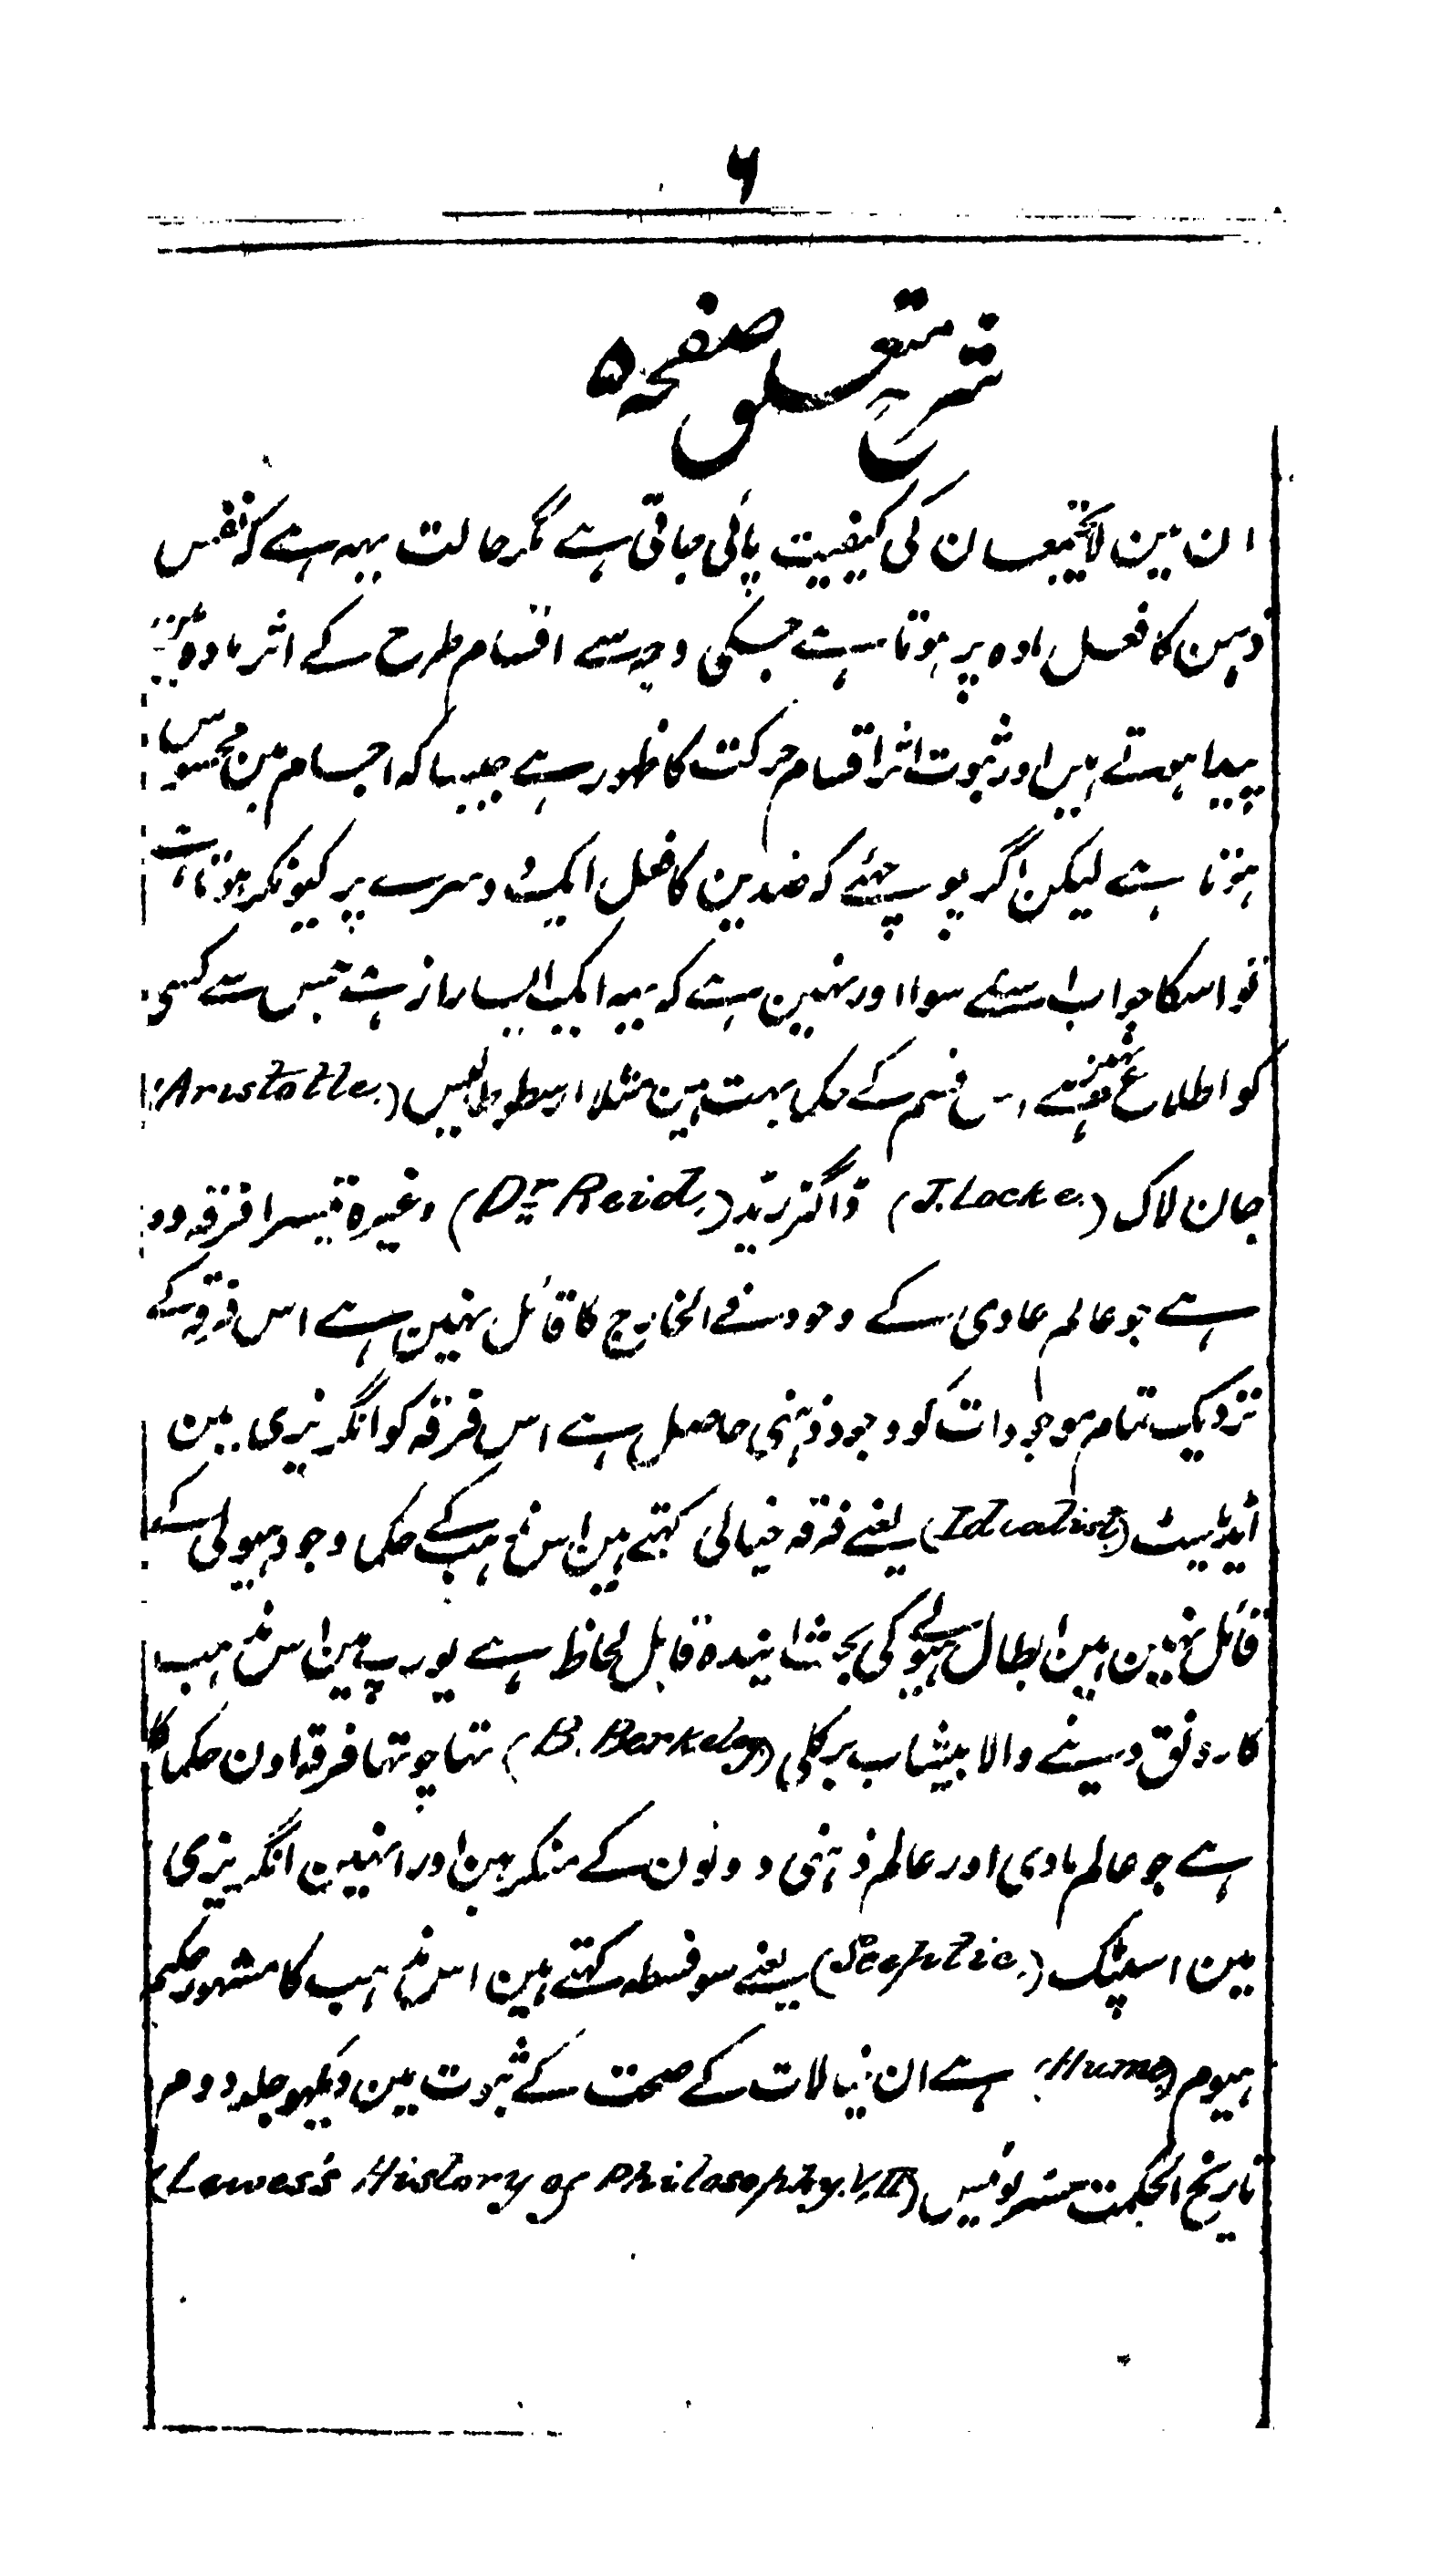 ۶
شرح متعلق صفحہ ۵
ان مین لا یجتمعان کی کیفیت پائی جاتی ہے مگر حالت یہہ ہے کہ نفس
ذہن کا فعل مادہ پر ہوتا ہے جسکی وجہ سے اقسام طرح کے اثر مادہ مین
پیدا ہوتے ہین اور ثبوت اثر اقسام حرکت کا ظہور ہے جیسا کہ اجسام مین محسوس
ہوتا ہے لیکن اگر پوچھئے کہ ضدین کا فعل ایک دوسرے پر کیونکر ہوتا ہے
تو اسکا جواب اسکے سوا اور نہین ہے کہ یہہ ایک ایسا راز ہے جس سے کسی
کو اطلاع نہین ہے اس قسم کے حکما بہت ہین مثلا ارسطوطالیس (Aristotle.)
جان لاک (J. Locke.) ڈاکٹر ریڈ (Dr Reid.) وغیرہ تیسرا فرقہ وہ
ہے جو عالم مادی کے وجود فے الخارج کا قائل نہین ہے اس فرقہ کے
نزدیک تمام موجودات کو وجود ذہنی حاصل ہے اس فرقہ کو انگریزی مین
ایڈلسٹ (Idealist) یعنے فرقہ خیالی کہتے ہین اس مذہب کے حکما وجود ہیولی کے
قائل نہین ہین ابطال ہیولے کی بحث ایندہ قابل لحاظ ہے یورپ مین اس مذہب
کا رونق دینے والا بیشاب برکلی (B. Berkeley) تھا چوتھا فرقہ اون حکما کا
ہے جو عالم مادی اور عالم ذہنی دونون کے منکر ہین اور انہین انگریزی
مین اسپٹک (Sceptic.) یعنے سوفسطہ کہتے ہین اس مذہب کا مشہور حکیم
ہیوم (Hume) ہے ان خیالات کے صحت کے ثبوت مین دیکھو جلد دوم
تاریخ الحکمت مسٹر لوئیس (Lewes's History of Philosophy. V. II)